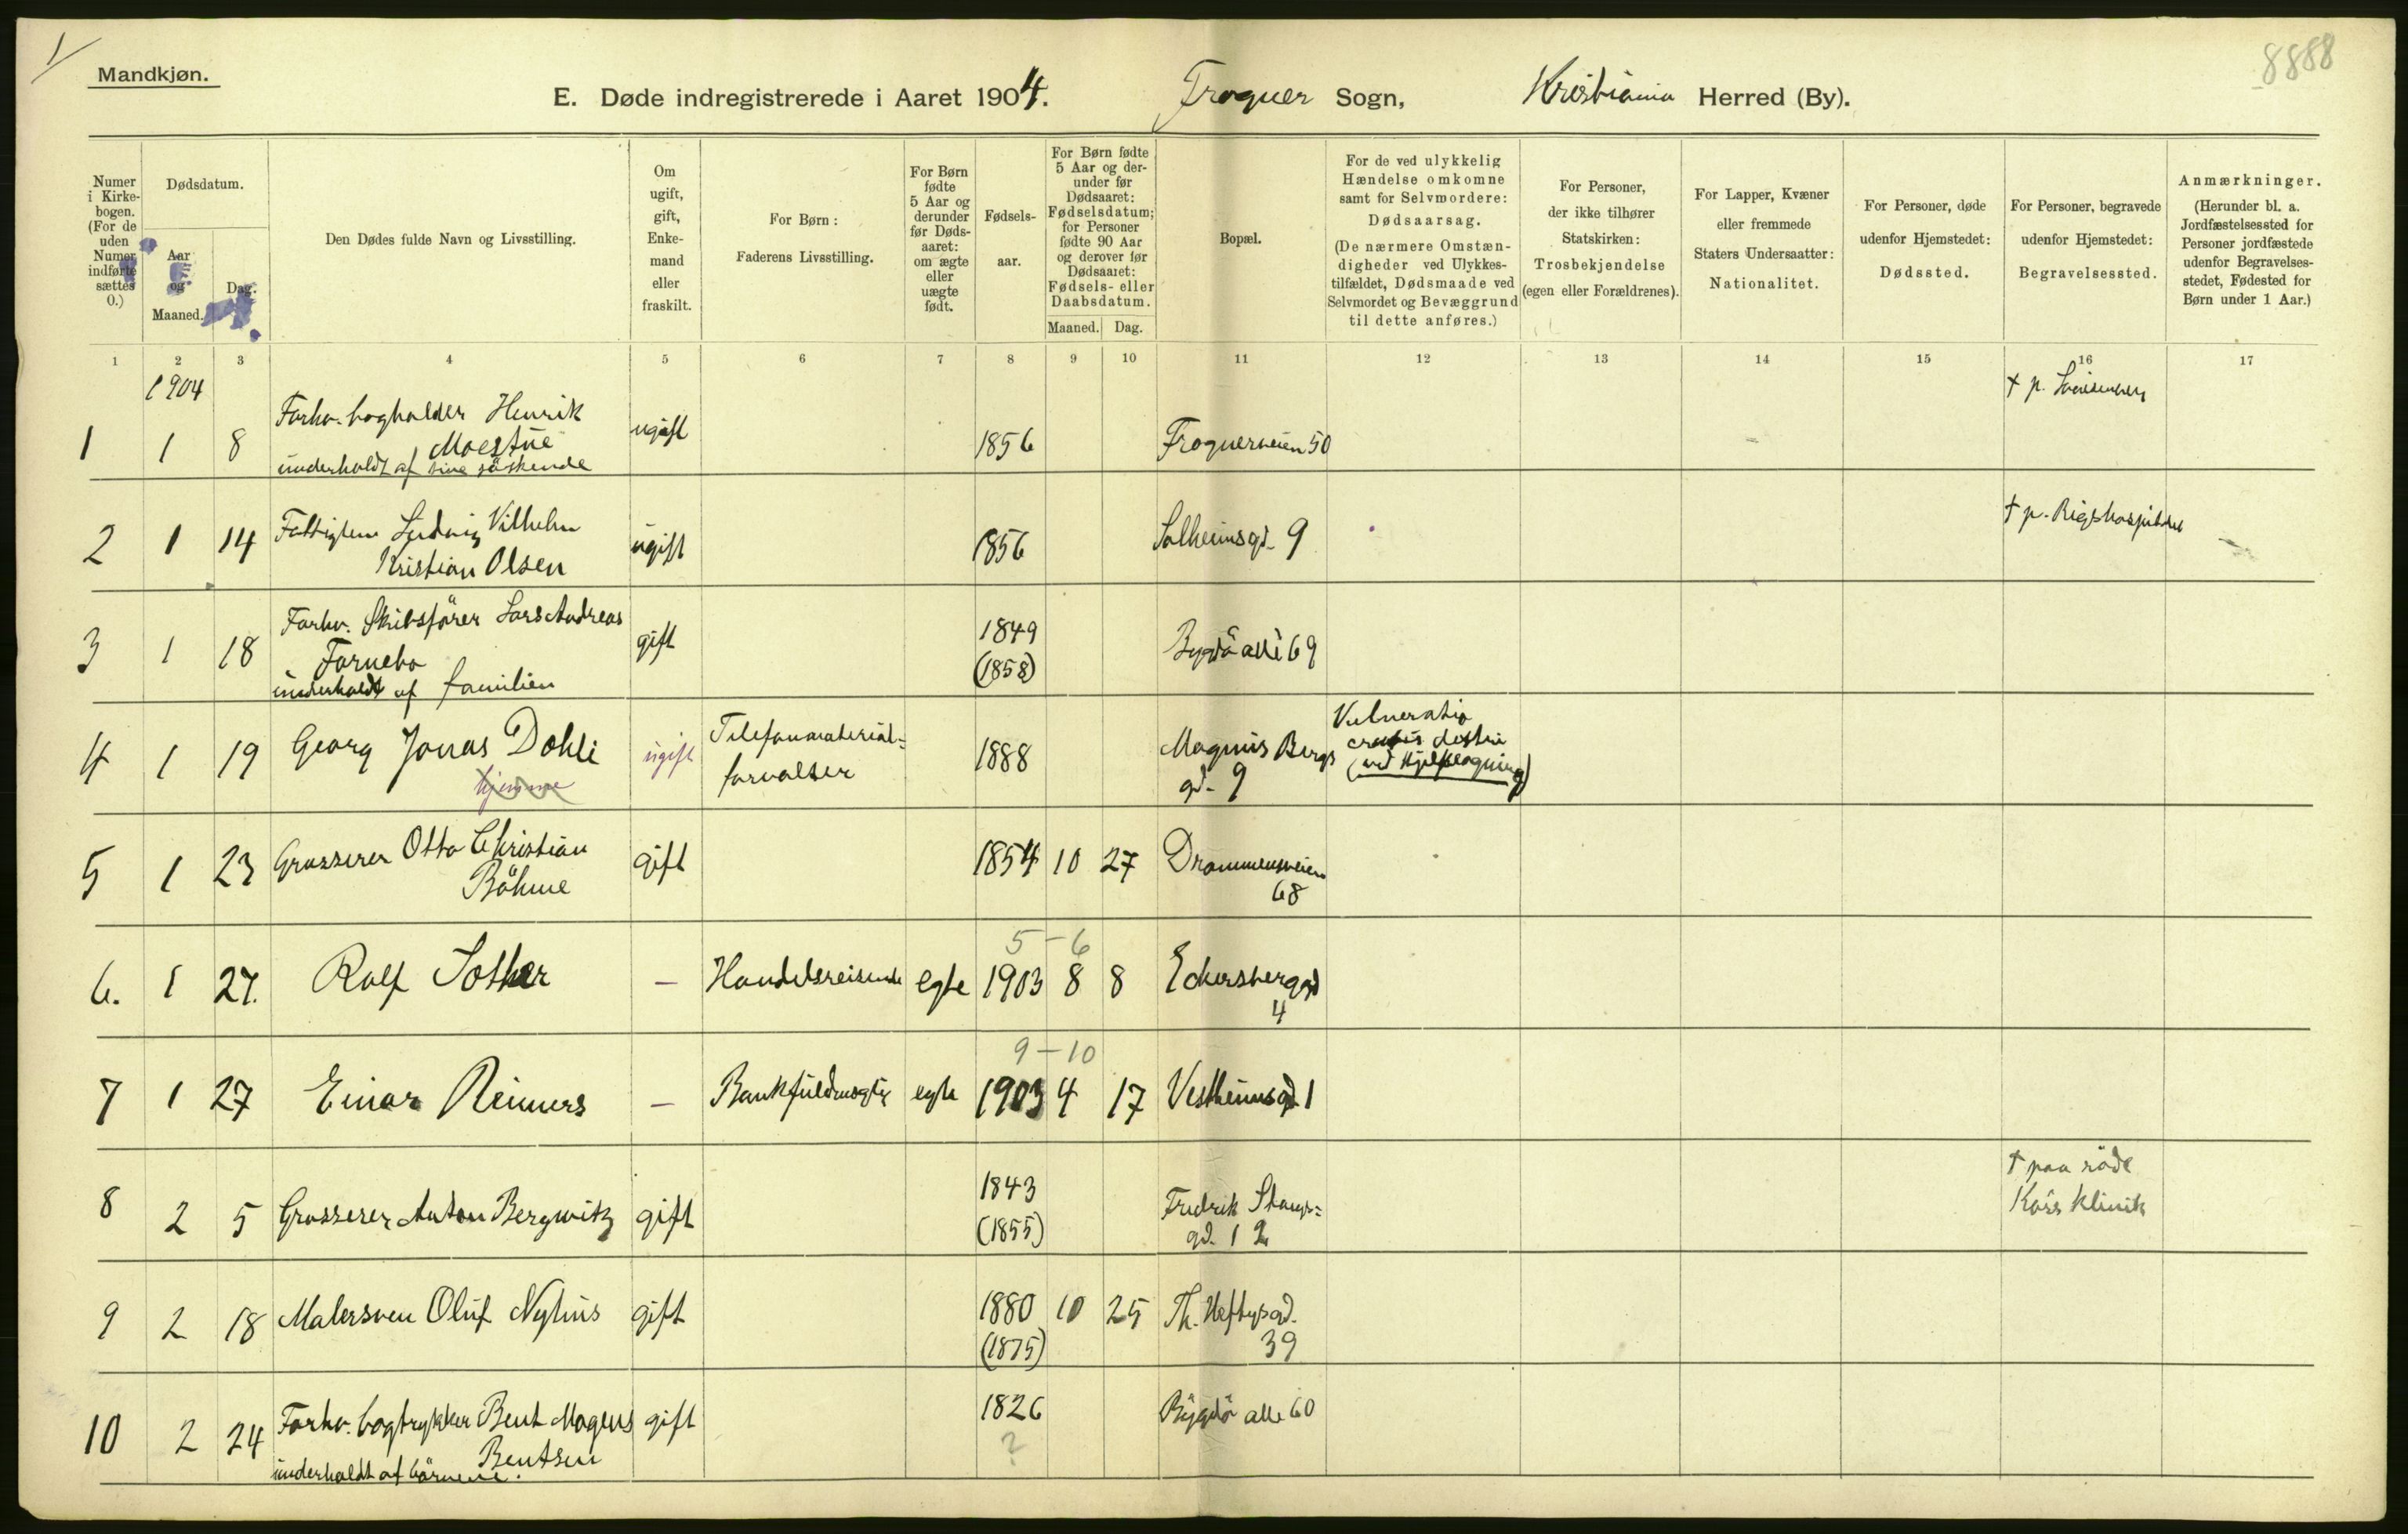 Mandkjøn.
8888
E. Døde indregistrerede i Aaret 1904. Frogner Sogn, Kristiania Herred (By).
Numer i Kirkebogen. (For de uden Numer indførte sættes 0.)
Dødsdatum.
Aar og Maaned.
Dag.
Den Dødes fulde Navn og Livsstilling.
Om ugift, gift, Enkemand eller fraskilt.
For Børn: Faderens Livsstilling.
For Børn fødte 5 Aar og derunder før Dødsaaret: om ægte eller uægte født.
Fødselsaar.
For Børn fødte 5 Aar og derunder før Dødsaaret: Fødselsdatum; for Personer fødte 90 Aar og derover før Dødsaaret: Fødsels- eller Daabsdatum.
Maaned. Dag.
Bopæl.
For de ved ulykkelig Hændelse omkomne samt for Selvmordere: Dødsaarsag. (De nærmere Omstændigheder ved Ulykkestilfældet, Dødsmaade ved Selvmordet og Bevæggrund til dette anføres.)
For Personer, der ikke tilhører Statskirken: Trosbekjendelse (egen eller Forældrenes).
For Lapper, Kvæner eller fremmede Staters Undersaatter: Nationalitet.
For Personer, døde udenfor Hjemstedet: Dødssted.
For Personer, begravede udenfor Hjemstedet: Begravelsessted.
Anmærkninger. (Herunder bl. a. Jordfæstelsessted for Personer jordfæstede udenfor Begravelsesstedet, Fødested for Børn under 1 Aar.)
1 2 3 4 5 6 7 8 9 10 11 12 13 14 15 16 17
1904
1 1 8 Forhv. bogholder Henrik Moestue underholdt af sine söskende ugift 1856 Frognerveien 50
2 1 14 Fattiglem Ludvig Vilhelm Kristian Olsen ugift 1856 Solheimsgd. 9 † p. Rigshospitalet
3 1 18 Forhv. Skibsförer Lars Andreas Fornebo underholdt af familien gift 1849 (1858) Bygdö allé 69
4 1 19 Georg Jonas Dohli hjemme ugift Telefonmaterialforvalter 1888 Magnus Bergs gd. 9 Vulneratio cruris dextri (ved Kjelkeagning)
5 1 23 Grosserer Otto Christian Böhme gift 1854 10 27 Drammensveien 68
5 – 6
6. 1 27. Rolf Sother – Handelsreisende egte 1903 8 8 Eckersbergsgd 4
9 – 10
7 1 27 Einar Reimers – Bankfuldmægtig egte 1903 4 17 Vestheimsgd. 1
8 2 5 Grosserer Anton Bergwitz gift 1843 (1855) Fredrik Stangsgd. 12 † paa röde Kors klinik
9 2 18 Malersven Oluf Nyhus gift 1880 (1875) 10 25 Th. Heftyesgd. 39
10 2 24 Forhv. bogtrykker Bent Mogens Bentsen underholdt af börnene. gift 1826 ? Bygdö alle 60